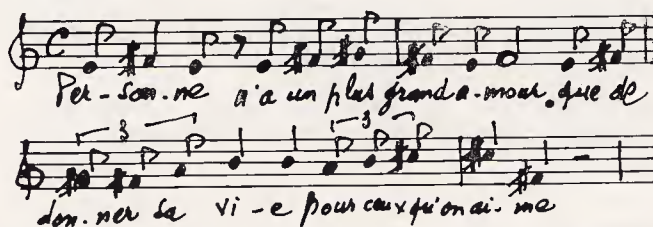 Per-son-ne n'a un plus grand a-mour. que de
3 3
don-ner sa vi-e pour ceux qu'on ai-me